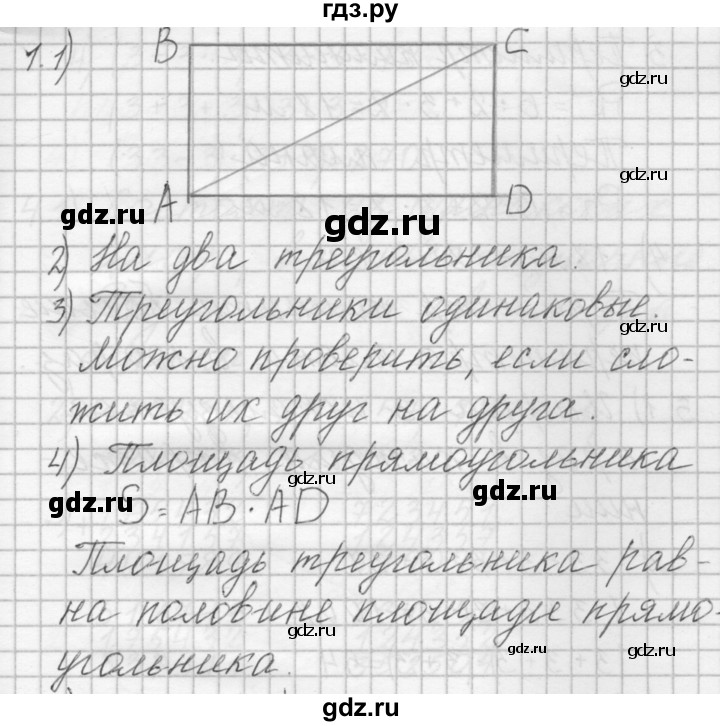 гдз.ру
1. 1) B C
gdz.ru
gdz.ru
A D
gdz.ru
gdz.ru
2) На два треугольника.
gdz.ru
3) Треугольники одинаковые.
gdz.ru
Можно проверить, если сло-
жить их друг на друга.
4) Площадь прямоугольника
gdz.ru
gdz.ru
gdz.ru
S = AB · AD
Площадь треугольника рав-
на половине площади прямо-
gdz.ru
угольника.
gdz.ru
gdz.ru
gdz.ru